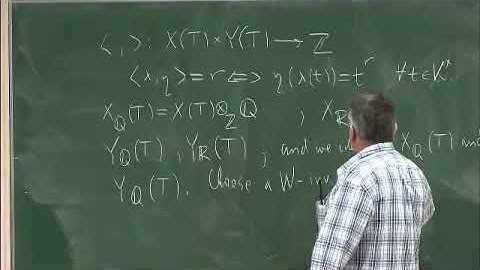 < , >: X(T) × Y(T) → ℤ
<x,η> = r ⇔ η(λ(t)) = t^r ∀t∈K^*.
X_Q(T) = X(T) ⊗_ℤ Q , X_R
Y_Q(T), Y_R(T), and we X_Q(T) and
Y_Q(T). Choose a W-inv